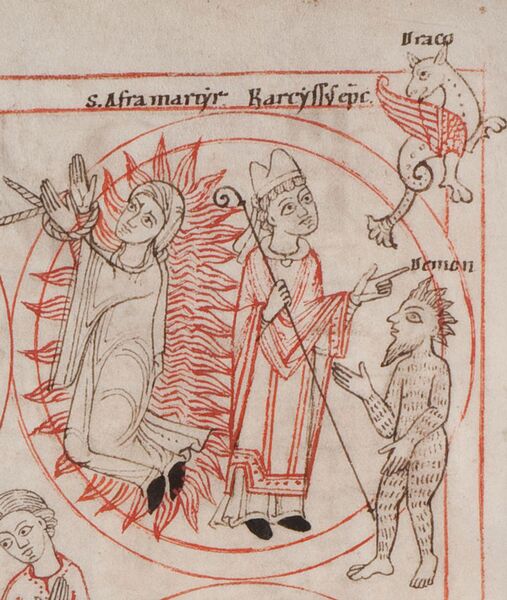 Draco
S. Afra martyr. Narcyssus epc.
Demon